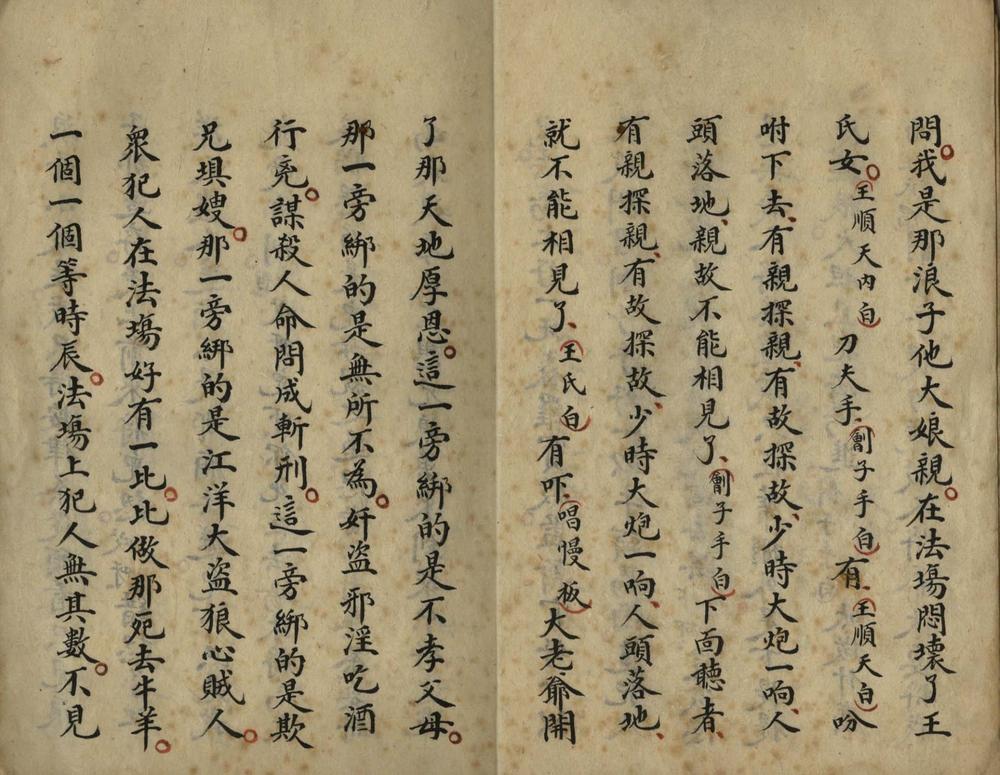 問。我是那浪子他大娘親。在法塲悶壞了王
氏女。王順天內白刀夫手、劊子手白有、王順天白吩
咐下去、有親探親、有故探故、少時大炮一响、人
頭落地、親故不能相見了、劊子手白下面聽者、
有親探親、有故探故、少時大炮一响、人頭落地、
就不能相見了、王氏白有吓、唱慢板大老爺開
了那天地厚恩。這一旁綁的是不孝父母。
那一旁綁的是無所不為。奸盜邪淫吃酒
行兇。謀殺人命問成斬刑。這一旁綁的是欺
兄埧嫂。那一旁綁的是江洋大盜狼心賊人。
衆犯人在法塲好有一比。比做那宛去牛羊。
一個一個等時辰。法塲上犯人無其數。不見